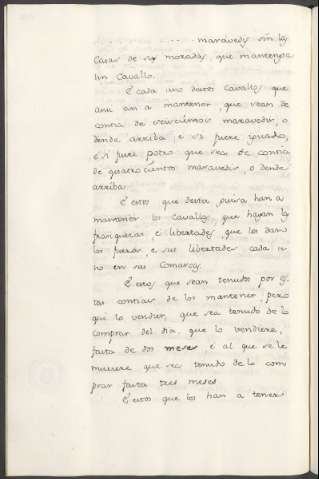 . . . . . . . . . . . . maravedis sin las
Casas de sus moradas, que mantengan
un Cavallo.
E cada uno destos Cavallos que
ansi an a mantener, que sean de
contia de seiscientos maravedis, o
dende arriba e si fuere
e si fuere potro que sea de contia
de quatrocientos maravedis, o dende
arriba
E estos que desta guisa han a
mantener los Cavallos, que hayan las
franquezas, e libertades, que les dan
los fueros, e sus libertades cada u-
no en sus Comarcas.
E estos que sean tenudos por es-
tas contias de los mantener, pero
qui lo vender, que sea tenudo de lo
comprar del dia, que lo vendiere,
fasta de dos meses e al que se le
muriere que sea tenudo de lo com
prar fasta tres meses.
E estos que los han a tener